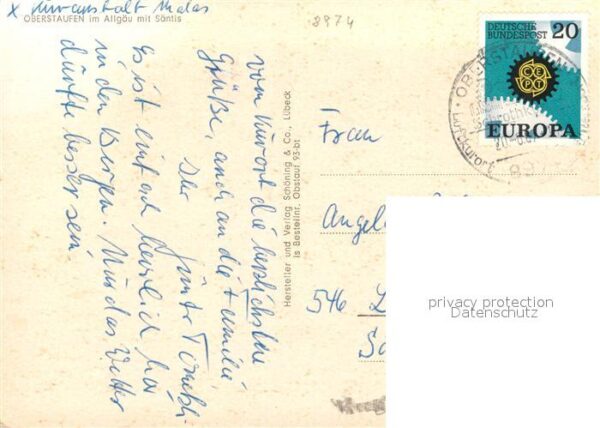 x Kuranstalt Malas
OBERSTAUFEN im Allgäu mit Säntis
8974
vom Kurort die herzlichsten
Grüße, auch an die Familie,
Günter
Es ist einfach herrlich hier
in den Bergen. Nur das Wetter
dürfte besser sein.
Hersteller und Verlag Schöning & Co., Lübeck
is Bestellnr. Obstauf 93-bt
DEUTSCHE
BUNDESPOST
20
CEPT
EUROPA
OBERSTAUFEN
Schrothkurort
Frau
546
privacy protection
Datenschutz